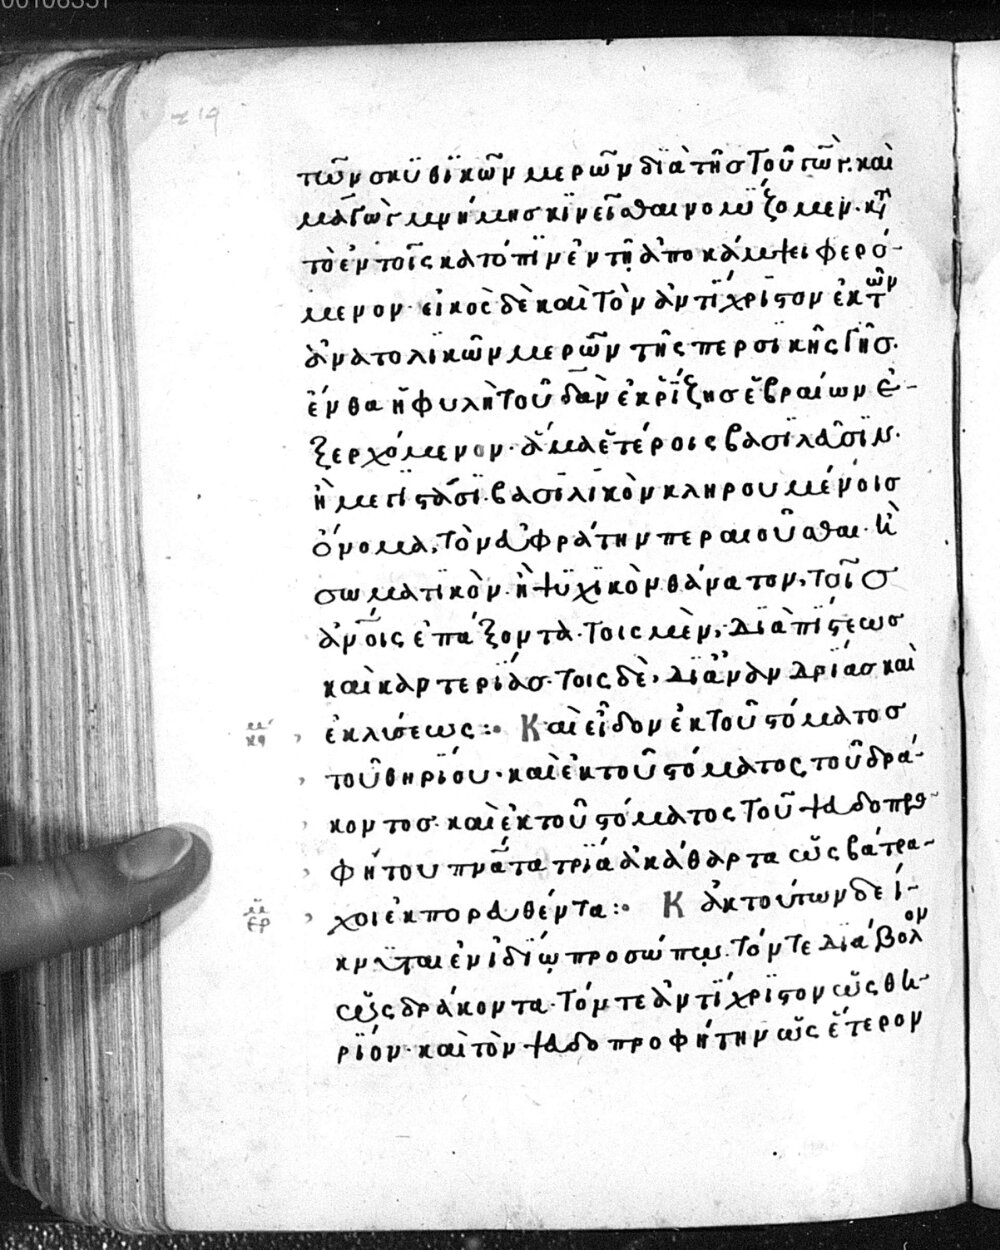 τῶν σκϋθϊκῶν μερῶν δϊὰ τῆσ τοῦ γὼγ. καὶ
μαγὼγ μνήμης κϊνεῖσθαι νομΐζομεν. κατὰ
τὸ ἐν τοῖς κατόπϊν ἐν τῇ ἀποκαλύψει φερό-
μενον. εἰκὸς δὲ καὶ τὸν ἀντίχριστον ἐκ τῶν
ἀνατολϊκῶν μερῶν τῆς περσϊκῆς γῆσ.
ἔνθα ἡ φυλὴ τοῦ δὰν ἐκ ῥΐζησ ἑβραίων ἐ-
ξερχόμενον. ἅμα ἑτέροις βασϊλεῦσϊν.
ἢ μεγϊστᾶσϊ. βασϊλϊκὸν κληρουμένοισ
ὄνομα. τὸν εὐφράτην περαιοῦσθαι. καὶ
σωματϊκὸν. ἢ ψϋχϊκὸν θάνατον. τοῖσ
ἀνοις ἐπάξοντα. τοις μὲν, δϊὰ πΐστεωσ
καὶ καρτερΐασ. τοις δὲ, δϊὰ ἀνανδρΐασ καὶ
ἐκλύσεως :· Καὶ εἶδον ἐκ τοῦ στόματοσ
τοῦ θηρΐου. καὶ ἐκ τοῦ στόματος τοῦ δρά-
κοντοσ. καὶ ἐκ τοῦ στόματος τοῦ ψευδοπρο-
φήτου πνατα τρΐα ἀκάθαρτα ὡς βάτρα-
χοι ἐκπορευθέντα :· Κἀκ τούτων δεί-
κνϋται ἐν ἰδΐῳ προσώπῳ. τόν τε δϊάβολον
ὡς δράκοντα. τόν τε ἀντΐχριστον ὡς θη-
ρΐον. καὶ τὸν ψευδοπροφήτην ὡς ἕτερον